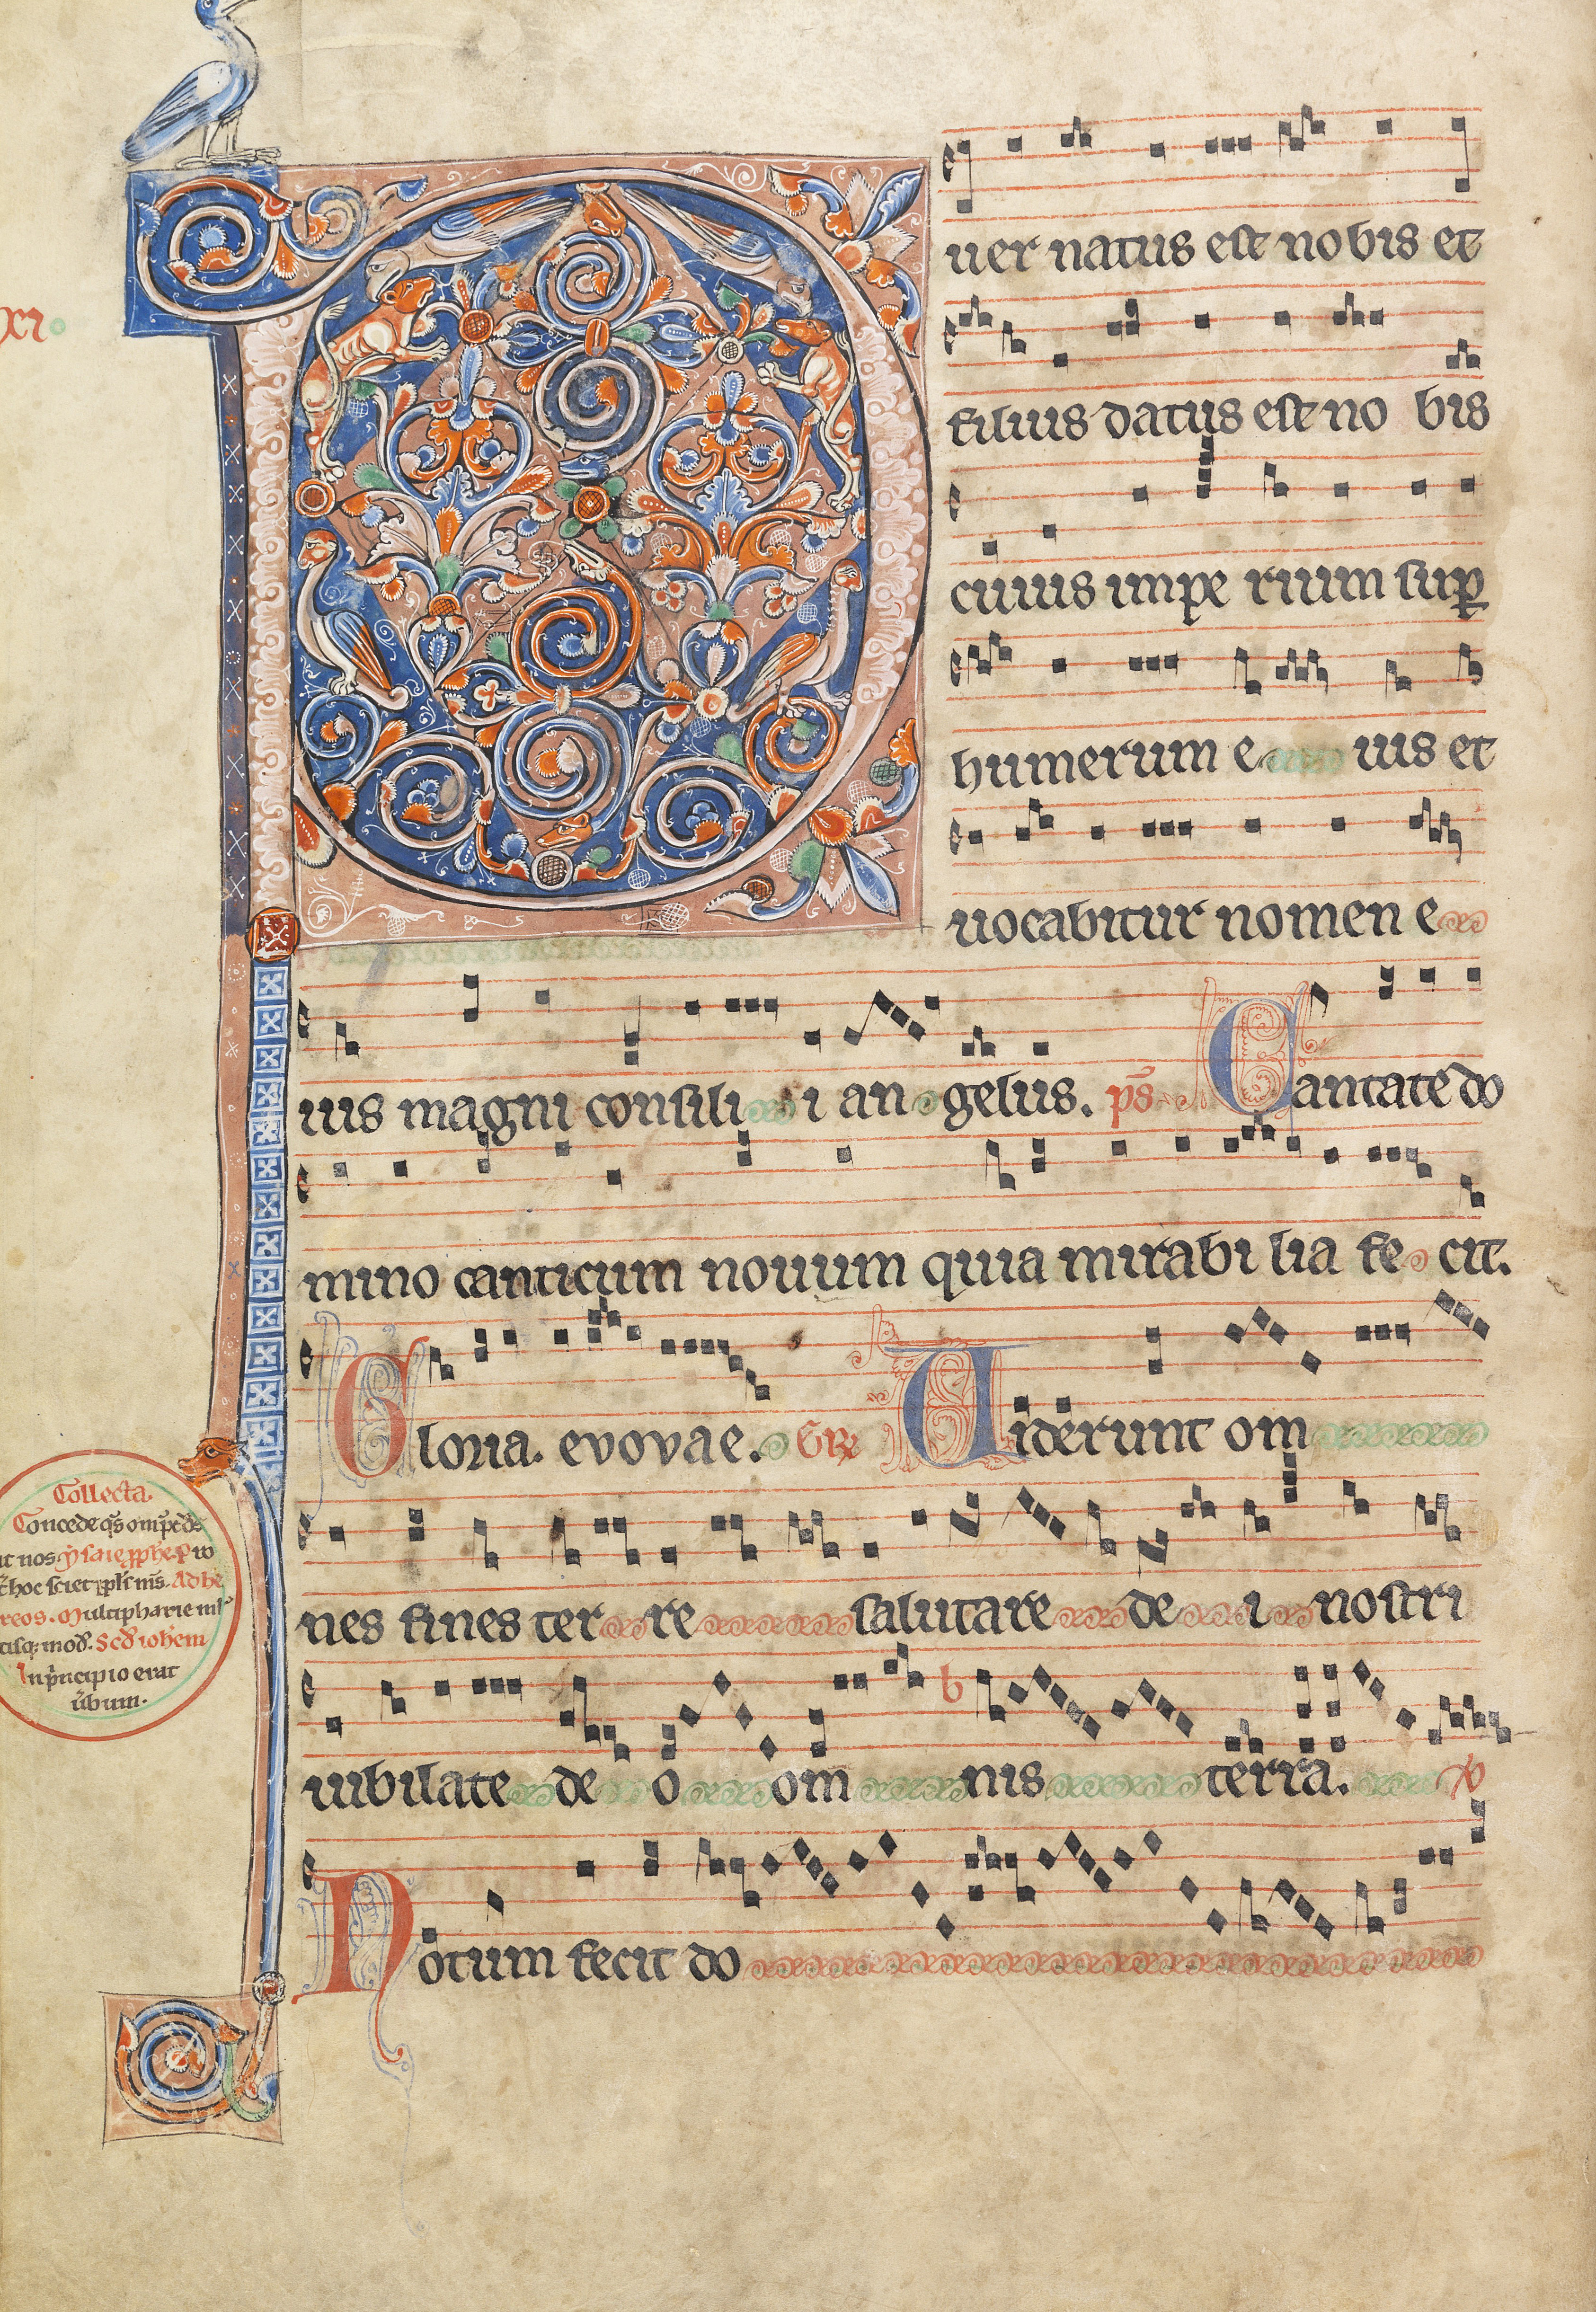 P
uer natus est nobis et
filius datus est no bis
cuius impe rium sup
humerum e ius et
uocabitur nomen e
xi
ius magni consili i an gelus. ps Cantate do
mino canticum nouum quia mirabi lia fe cit.
Gloria. evovae. Gr Uiderunt om
nes fines ter re salutare de i nostri
iubilate de o om nis terra. V
Notum fecit do
Collecta.
Concede qs omps ds
ut nos
Ad he
reos. Multipharie
In principio erat
ubum.